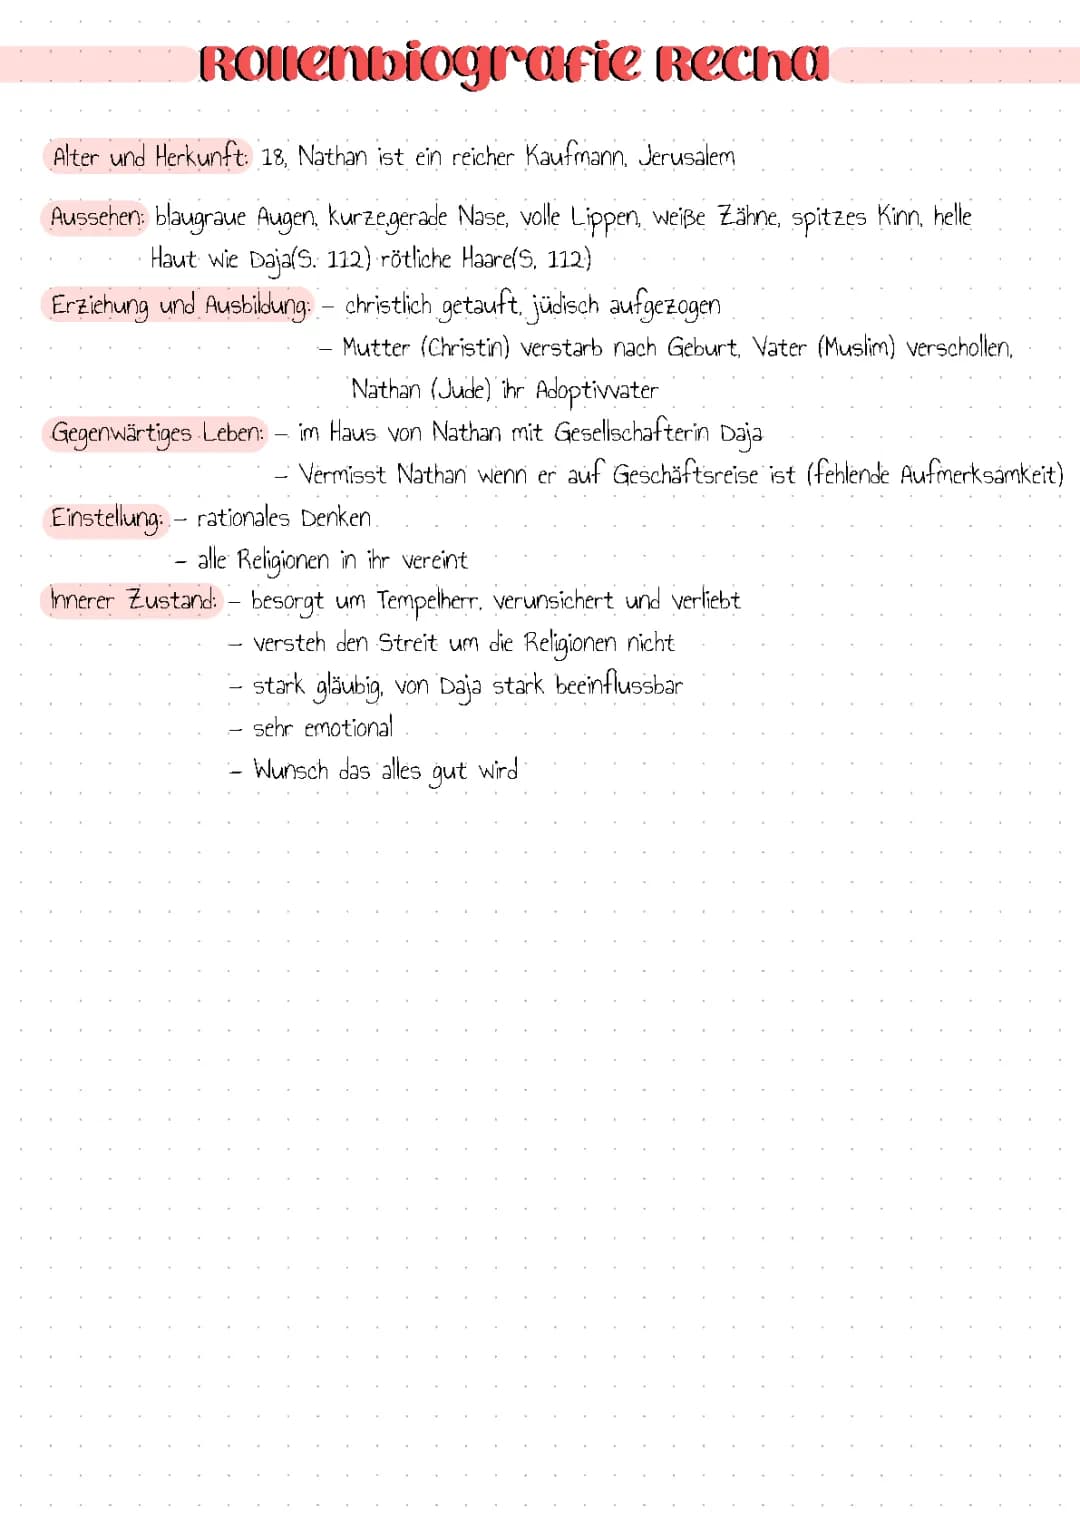 Rollenbiografie Recha
Alter und Herkunft: 18, Nathan ist ein reicher Kaufmann, Jerusalem
Aussehen: blaugraue Augen, kurze,gerade Nase, volle Lippen, weiße Zähne, spitzes Kinn, helle
Haut wie Daja(S. 112) rötliche Haare(S, 112)
Erziehung und Ausbildung: - christlich getauft, jüdisch aufgezogen
- Mutter (Christin) verstarb nach Geburt, Vater (Muslim) verschollen,
Nathan (Jude) ihr Adoptivvater
Gegenwärtiges Leben: - im Haus von Nathan mit Gesellschafterin Daja
- Vermisst Nathan wenn er auf Geschäftsreise ist (fehlende Aufmerksamkeit)
Einstellung: - rationales Denken
- alle Religionen in ihr vereint
Innerer Zustand: - besorgt um Tempelherr, verunsichert und verliebt
- versteh den Streit um die Religionen nicht
- stark gläubig, von Daja stark beeinflussbar
- sehr emotional
- Wunsch das alles gut wird